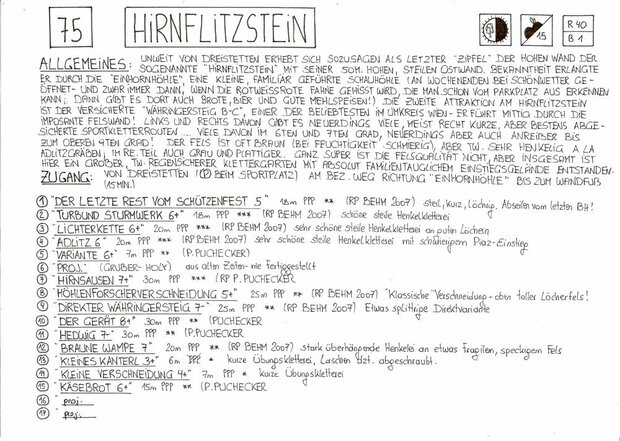 75
HIRNFLITZSTEIN
15
R 40
B 1
ALLGEMEINES: UNWEIT VON DREISTETTEN ERHEBT SICH SOZUSAGEN ALS LETZTER "ZIPFEL" DER HOHEN WAND DER
SOGENANNTE "HIRNFLITZSTEIN" MIT SEINER 50M. HOHEN, STEILEN OSTWAND. BEKANNTHEIT ERLANGTE
ER DURCH DIE "EINHORNHÖHLE" EINE KLEINE, FAMILIÄR GEFÜHRTE SCHAUHÖHLE (AN WOCHENENDEN BEI SCHÖNWETTER GE-
ÖFFNET- UND ZWAR IMMER DANN, WENN DIE ROTWEISSROTE FAHNE GEHISST WIRD, DIE MAN SCHON VOM PARKPLATZ AUS ERKENNEN
KANN; DANN GIBT ES DORT AUCH BROTE, BIER UND GUTE MEHLSPEISEN!) DIE ZWEITE ATTRAKTION AM HIRNFLITZSTEIN
IST DER VERSICHERTE "WÄHRINGERSTEIG B-C", EINER DER BELIEBTESTEN IM UMKREIS WIEN- ER FÜHRT MITTIG DURCH DIE
IMPOSANTE FELSWAND! LINKS UND RECHTS DAVON GIBT ES NEUERDINGS VIELE, MEIST RECHT KURZE, ABER BESTENS ABGE-
SICHERTE SPORTKLETTERROUTEN... VIELE DAVON IM 6TEN UND 7TEN GRAD, NEUERDINGS ABER AUCH ANREIBER BIS
ZUM OBEREN 4TEN GRAD! DER FELS IST OFT BRAUN (BEI FEUCHTIGKEIT SCHMIERIG), ABER TW. SEHR HENKELIG A LA
ADLITZGRÄBEN; IM RE. TEIL AUCH GRAU UND PLATTIGER. GANZ SUPER IST DIE FELSQUALITÄT NICHT, ABER INSGESAMT IST
HIER EIN GROßER, TW. REGENSICHERER KLETTERGARTEN MIT ABSOLUT FAMILIENTAUGLICHEM EINSTIEGSGELÄNDE ENTSTANDEN.
ZUGANG: VON DREISTETTEN (P BEIM SPORTPLATZ) AM BEZ. WEG RICHTUNG "EINHORNHÖHLE" BIS ZUM WANDFUß
(15 MIN.)
1 "DER LETZTE REST VOM SCHÜTZENFEST 5" 18m PPP ** (RP BEHM 2007) steil, kurz, löchrig. Abseilen vom letzten BH!
2 "TURBUND STURMWERK 6+" 18m PPP *** (RP BEHM 2007) schöne steile Henkelkletterei
3 "LICHTERKETTE 6+" 20m PPP *** (RP BEHM 2007) sehr schöne steile Henkelkletterei an guten Löchern
4 "ADLITZ 6" 20m PPP *** (RP BEHM 2007) sehr schöne steile Henkelkletterei mit schwierigem Piaz-Einstieg
5 "VARIANTE 6+" 7m PPP ** (P. PUCHECKER)
6 "PROJ." (GRUBER-HOLY) aus alten Zeiten- nie fertiggestellt
7 "HIRNSAUSEN 7+" 30m PPP *** (RP P. PUCHECKER)
8 "HÖHLENFORSCHERVERSCHNEIDUNG 5+" 25m PPP ** (RP BEHM 2007) "Klassische "Verschneidung- oben toller Löcherfels!
9 "DIREKTER WÄHRINGERSTEIG 7-" 25m PPP ** (RP BEHM 2007) Etwas splittrige Direktvariante
10 "DER GERÄT 8+" 30m PPP ** (PUCHECKER
11 "HEDWIG 7-" 30m PPP ** (P. PUCHECKER
12 "BRAUNE WAMPE 7" 20m PPP ** (RP BEHM 2007) stark überhängende Henkelei an etwas fragilen, speckigem Fels
13 "KLEINES KANTERL 3+" 6m PPP * kurze Übungskletterei, Laschen tzt. abgeschraubt.
14 "KLEINE VERSCHNEIDUNG 4+" 7m PPP * kurze Übungskletterei
15 "KÄSEBROT 6+" 15m PPP ** (P. PUCHECKER
16 "proj.
17 "proj.